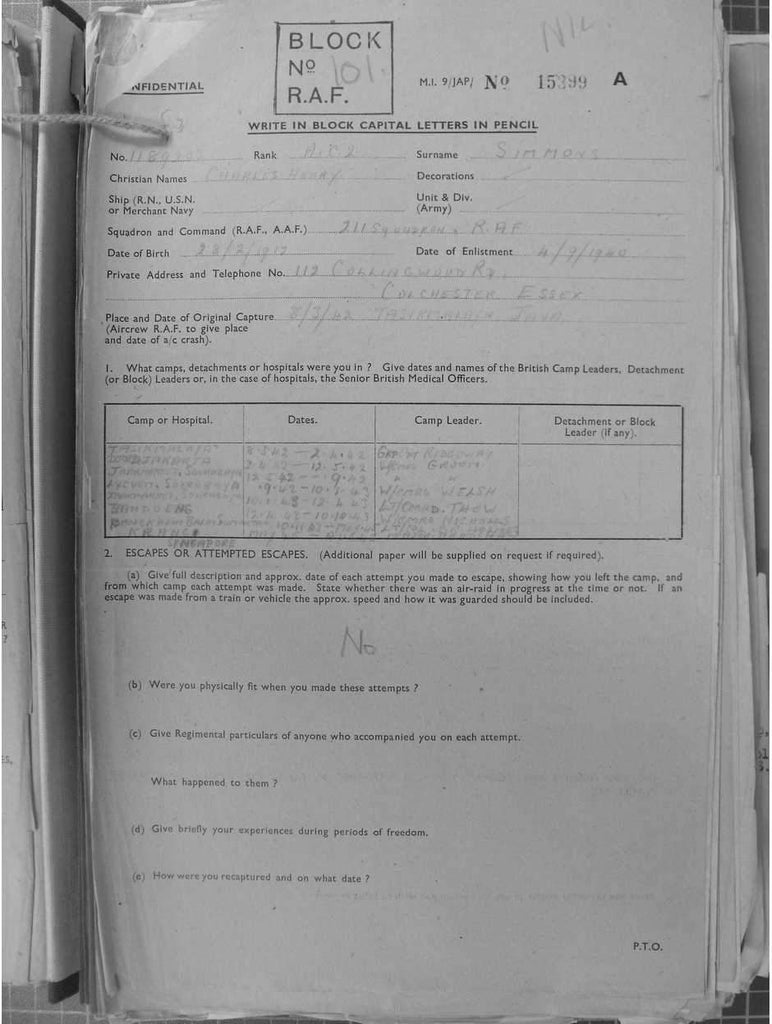 BLOCK
Nº 101.
R.A.F.
NIL
NFIDENTIAL
M.I. 9/JAP/ Nº 15399 A
WRITE IN BLOCK CAPITAL LETTERS IN PENCIL
No. Rank A.C.2 Surname SIMMONS
Christian Names CHARLES HENRY Decorations
Ship (R.N., U.S.N. Unit & Div.
or Merchant Navy (Army)
Squadron and Command (R.A.F., A.A.F.) 211 SQUADRON, R.A.F
Date of Birth 28/2/1917 Date of Enlistment 4/9/1940
Private Address and Telephone No. 112 COLLINGWOOD RD,
COLCHESTER ESSEX
Place and Date of Original Capture 8/3/42 TASIKMALAJA JAVA
(Aircrew R.A.F. to give place
and date of a/c crash).
1. What camps, detachments or hospitals were you in ? Give dates and names of the British Camp Leaders, Detachment
(or Block) Leaders or, in the case of hospitals, the Senior British Medical Officers.
Camp or Hospital. Dates. Camp Leader. Detachment or Block
Leader (if any).
TASIKMALAJA 8.3.42 — 2.4.42 GRP. CPT RIDGEWAY
DJOKJAKARTA — 12.5.42 W/CMD GROOM
12.5.42 — .9.42 " "
LYCEUM, SOERABAYA .9.42 — W/CMD WELSH
12.4.43 LT/CMDR. THEW
BANDOENG 12.4.43 — 10.10.43 W/CMDR NICHOLS
KRANGI
SINGAPORE
2. ESCAPES OR ATTEMPTED ESCAPES. (Additional paper will be supplied on request if required).
(a) Give full description and approx. date of each attempt you made to escape, showing how you left the camp, and
from which camp each attempt was made. State whether there was an air-raid in progress at the time or not. If an
escape was made from a train or vehicle the approx. speed and how it was guarded should be included.
No
(b) Were you physically fit when you made these attempts ?
(c) Give Regimental particulars of anyone who accompanied you on each attempt.
What happened to them ?
(d) Give briefly your experiences during periods of freedom.
(e) How were you recaptured and on what date ?
P.T.O.